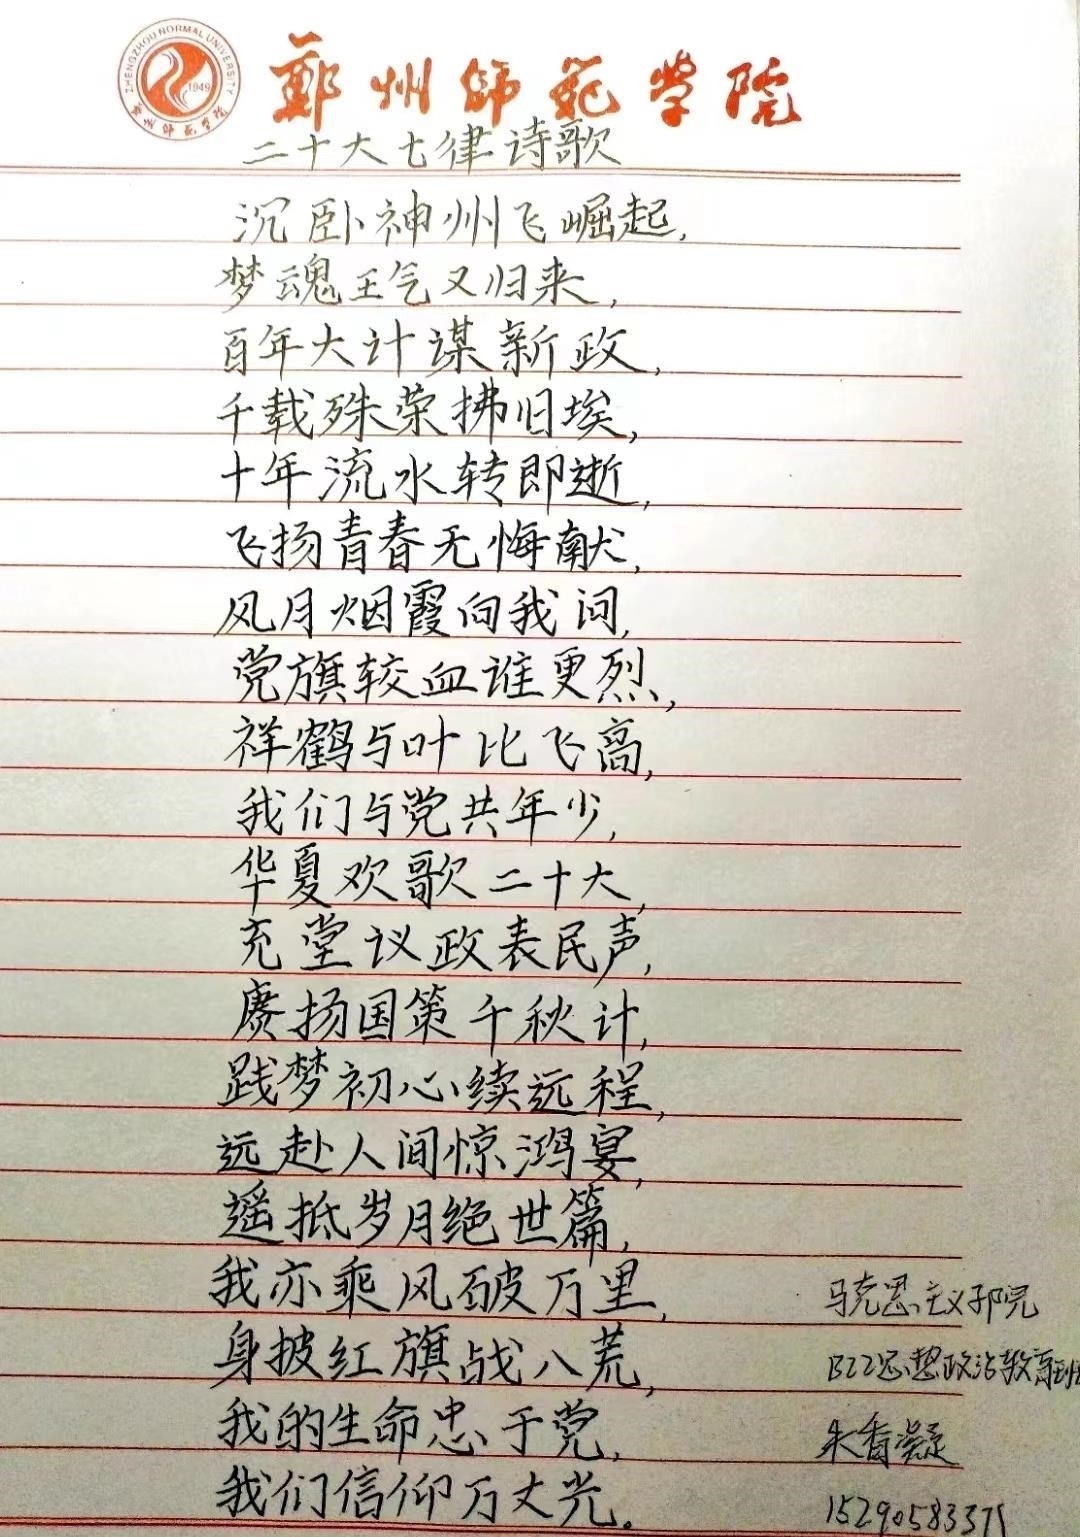 ZHENGZHOU NORMAL UNIVERSITY
1949
郑州师范学院
郑州师范学院
二十大七律诗歌
沉卧神州飞崛起,
梦魂王气又归来,
百年大计谋新政,
千载殊荣拂旧埃,
十年流水转即逝,
飞扬青春无悔献,
风月烟霞向我问,
党旗较血谁更烈,
祥鹤与叶比飞高,
我们与党共年少,
华夏欢歌二十大,
充堂议政表民声,
赓扬国策千秋计,
践梦初心续远程,
远赴人间惊鸿宴,
遥抵岁月绝世篇,
我亦乘风破万里,
身披红旗战八荒,
我的生命忠于党,
我们信仰万丈光。
马克思主义学院
B22思想政治教育班
朱香凝